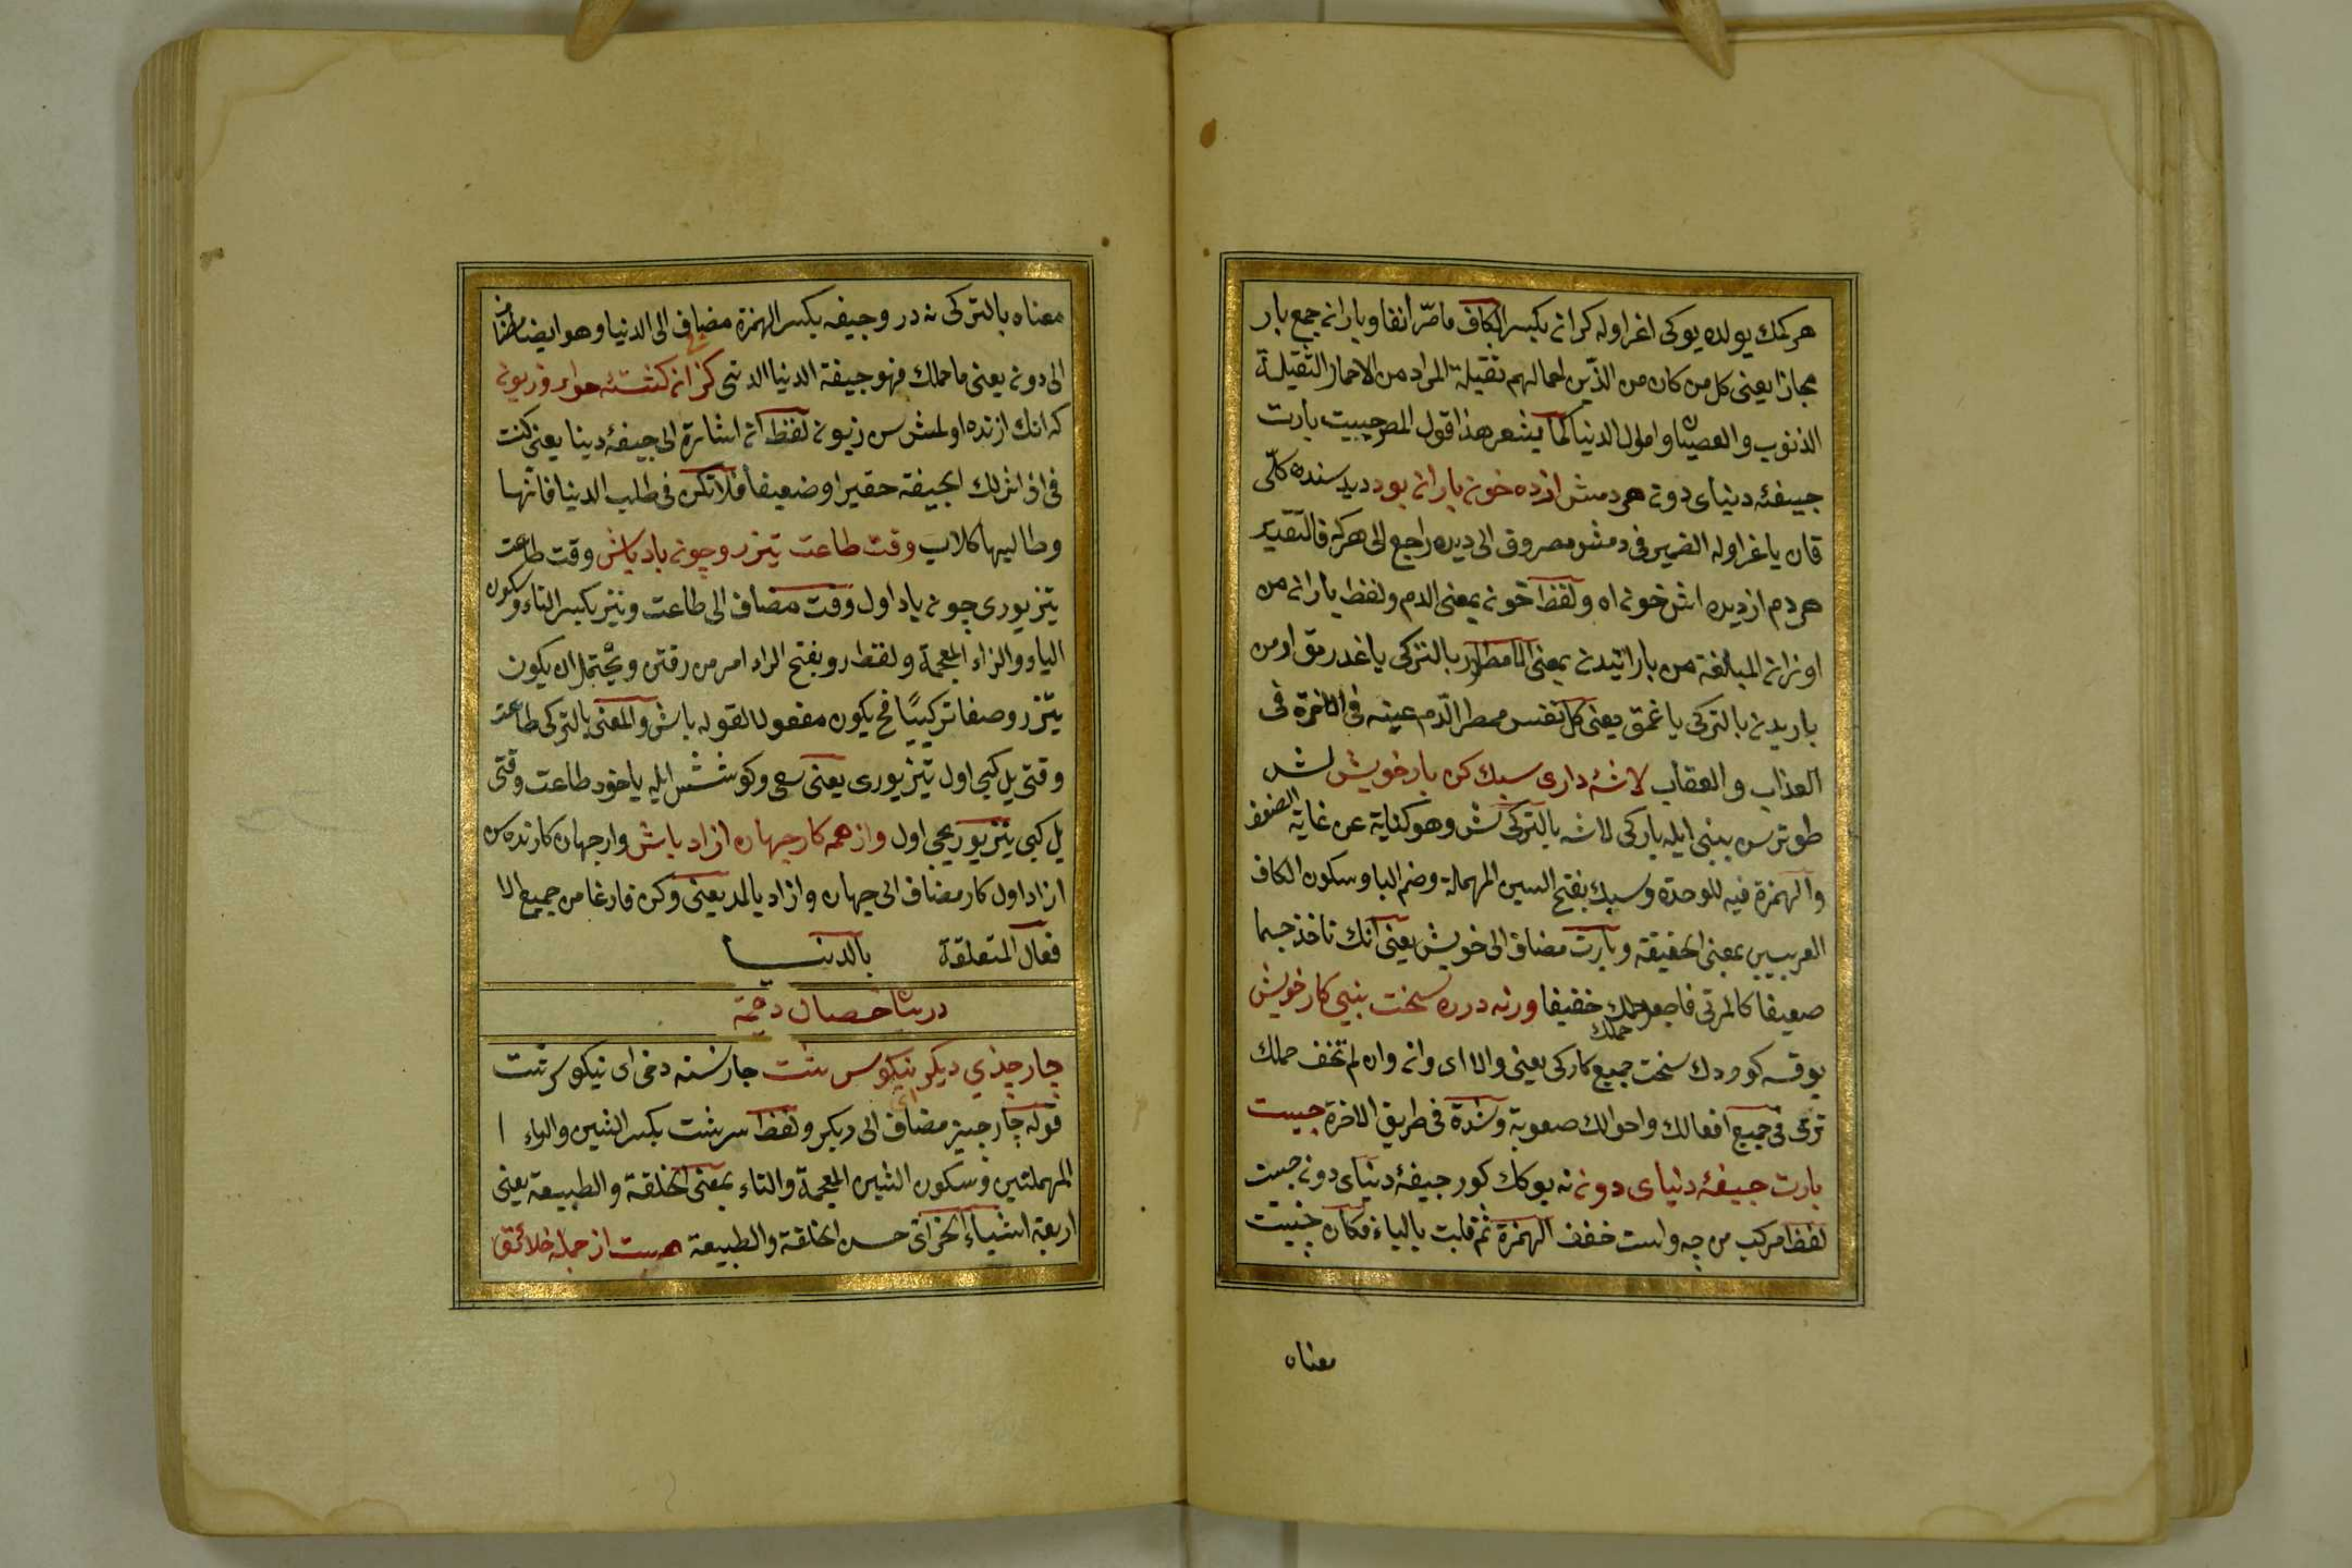 هر كمك يولده يوكى اغر اوله كران بكسر الكاف مامرّ آنفا وباران جمع بار
مجازا يعنى كل من كان من الذين احمالهم ثقيلة المراد من الاحمار الثقيلة
الذنوب والعصيان واموال الدنيا كما يشعر هذا قول المص چيست بارت
جيفهٔ دنياى دون هر دمش از ده خون باران بود ديد سنده كلّى
قان ياغر اوله الضمير فى دمش مصروف الى ديده راجع الى هركه فالتقدير
هر دم از ديده اش خون اه ولفظ خون بمعنى الدم ولفظ باران من
اوزان المبالغة من بارانيدن بمعنى الامطار بالتركى ياغدرمق او من
باريدن بالتركى ياغمق يعنى كل نفس ممطر الدّم عينه فى الاخرة فى
العذاب والعقاب لاشهٔ دارى سبك كن بار خويش لش
طوترسن بينى ايله باركى لاشه بالتركى لش وهو كناية عن غاية الضعف
والهمزة فيه للوحدة وسبك بفتح السين المهملة وضم البا وسكون الكاف
العربيين بمعنى الخفيفة وبارت مضاف الى خويش يعنى انك تاخذ جسما
ضعيفا كالمرتى فاجعل حملك خفيفا ورنه در ره سخت بينى كار خويش
حملك
يوقسه كوررسك سخت جميع كاركى يعنى والا اى وان وان لم تخف حملك
ترى فى جميع افعالك واحوالك صعوبة وشدة فى طريق الاخرة چيست
بارت جيفهٔ دنياى دون نه يوكك كور جيفهٔ دنياى دون چيست
لفظ مركب من چه واست خفف الهمزة ثم قلبت بالياء فكان چيست
معناه
معناه بالتركى نه در وجيفه بكسر الهمزة مضاف الى الدنيا وهو ايضا مضاف
الى دون يعنى ما حملك فهو جيفة الدنيا الدنى كز ان كشتهٔ خوار وزبون
كه انك ازنده اولمش سن زبون لفظ ان اشارة الى جيفهٔ دينا يعنى كنت
فى اثر تلك الجيفة حقيرا وضعيفا فلا تكن فى طلب الدنيا فانها
وطاليها كلاب وقت طاعت تيز رو چون باد باش وقت طاعت
تيز يورى چون ياد اول وقت مضاف الى طاعت وتيز بكسر التاء وسكون
الياء والزاء المعجمة ولفظ رو بفتح الراء امر من رفتن ويحتمل ان يكون
تيز رو وصفا تركيبيّا فح يكون مفعولا لقوله باش والمعنى بالتركى طاعت
وقتى يل كبى اول تيز يورى يعنى سعى وكوشش ايله ياخود طاعت وقتى
يل كبى تيز يوريجى اول واز همه كار جهان ازاد باش وار جهان كارنده سن
ازاد اول كار مضاف الى جهان وازاد بالمد يعنى وكن فارغا من جميع الا
فعال المتعلقة بالدنيا
در بيان خصال دخمه
چار چيزى ديكر نيكو سرشت چار نسنه دخى اى نيكو سرشت
قوله چار چيز مضاف الى ديكر ولفظ سرشت بكسر السين والراء ا
المهملتين وسكون الشين المعجمة والتاء بمعنى الخلقة والطبيعة يعنى
اربعة اشياء اخر اى حسن الخلقة والطبيعة هست از جمله خلائق